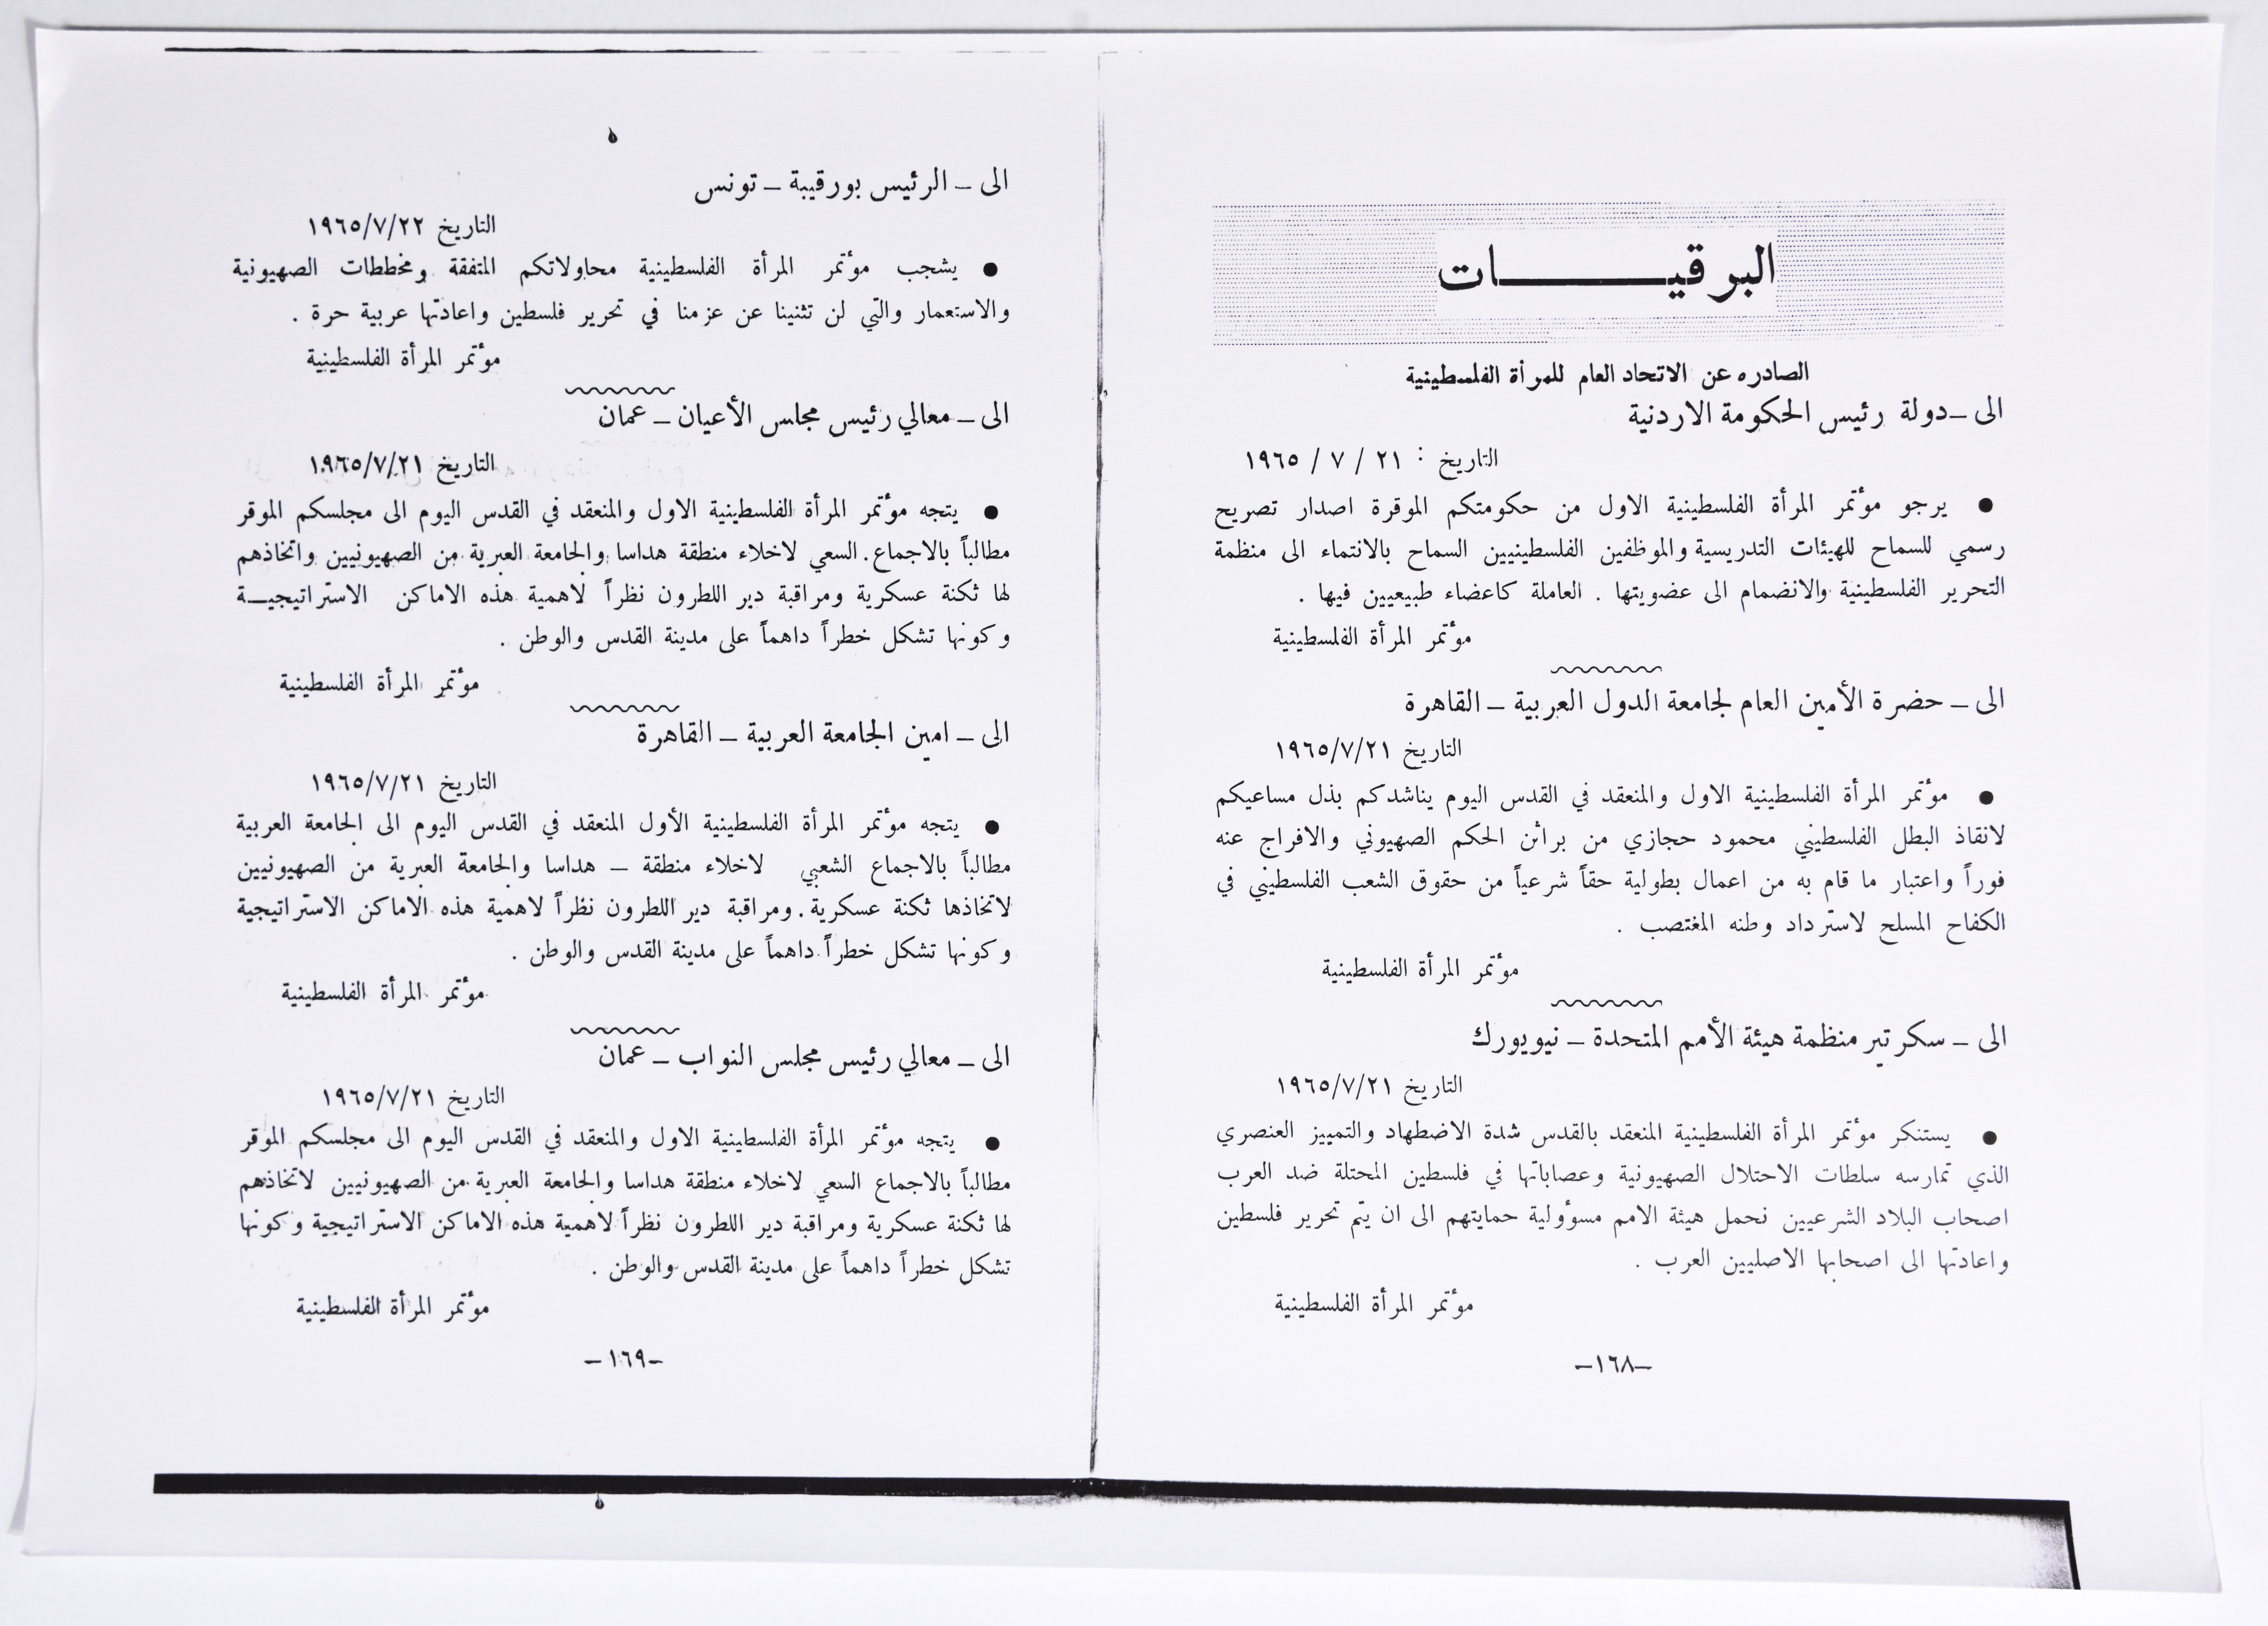 البرقيـــات
الصادره عن الاتحاد العام للمرأة الفلسطينية
الى – دولة رئيس الحكومة الاردنية
التاريخ : ٢١ / ٧ / ١٩٦٥
● يرجو مؤتمر المرأة الفلسطينية الاول من حكومتكم الموقرة اصدار تصريح
رسمي للسماح للهيئات التدريسية والموظفين الفلسطينيين السماح بالانتماء الى منظمة
التحرير الفلسطينية والانضمام الى عضويتها . العاملة كاعضاء طبيعيين فيها .
مؤتمر المرأة الفلسطينية
الى – حضرة الأمين العام لجامعة الدول العربية – القاهرة
التاريخ ١٩٦٥/٧/٢١
● مؤتمر المرأة الفلسطينية الاول والمنعقد في القدس اليوم يناشدكم بذل مساعيكم
لانقاذ البطل الفلسطيني محمود حجازي من براثن الحكم الصهيوني والافراج عنه
فوراً واعتبار ما قام به من اعمال بطولية حقاً شرعياً من حقوق الشعب الفلسطيني في
الكفاح المسلح لاسترداد وطنه المغتصب .
مؤتمر المرأة الفلسطينية
الى – سكرتير منظمة هيئة الأمم المتحدة – نيويورك
التاريخ ١٩٦٥/٧/٢١
● يستنكر مؤتمر المرأة الفلسطينية المنعقد بالقدس شدة الاضطهاد والتمييز العنصري
الذي تمارسه سلطات الاحتلال الصهيونية وعصاباتها في فلسطين المحتلة ضد العرب
اصحاب البلاد الشرعيين نحمل هيئة الامم مسوؤولية حمايتهم الى ان يتم تحرير فلسطين
واعادتها الى اصحابها الاصليين العرب .
مؤتمر المرأة الفلسطينية
–١٦٨–
الى – الرئيس بورقيبة – تونس
التاريخ ١٩٦٥/٧/٢٢
● يشجب مؤتمر المرأة الفلسطينية محاولاتكم المتفقة ومخططات الصهيونية
والاستعمار والتي لن تثنينا عن عزمنا في تحرير فلسطين واعادتها عربية حرة .
مؤتمر المرأة الفلسطينية
الى – معالي رئيس مجلس الأعيان – عمان
التاريخ ١٩٦٥/٧/٢١
● يتجه مؤتمر المرأة الفلسطينية الاول والمنعقد في القدس اليوم الى مجلسكم الموقر
مطالباً بالاجماع . السعي لاخلاء منطقة هداسا والجامعة العبرية من الصهيونيين واتخاذهم
لها ثكنة عسكرية ومراقبة دير اللطرون نظراً لاهمية هذه الاماكن الاستراتيجيـة
وكونها تشكل خطراً داهماً على مدينة القدس والوطن .
مؤتمر المرأة الفلسطينية
الى – امين الجامعة العربية – القاهرة
التاريخ ١٩٦٥/٧/٢١
● يتجه مؤتمر المرأة الفلسطينية الأول المنعقد في القدس اليوم الى الجامعة العربية
مطالباً بالاجماع الشعبي لاخلاء منطقة – هداسا والجامعة العبرية من الصهيونيين
لاتخاذها ثكنة عسكرية . ومراقبة دير اللطرون نظراً لاهمية هذه الاماكن الاستراتيجية
وكونها تشكل خطراً داهماً على مدينة القدس والوطن .
مؤتمر المرأة الفلسطينية
الى – معالي رئيس مجلس النواب – عمان
التاريخ ١٩٦٥/٧/٢١
● يتجه مؤتمر المرأة الفلسطينية الاول والمنعقد في القدس اليوم الى مجلسكم الموقر
مطالباً بالاجماع السعي لاخلاء منطقة هداسا والجامعة العبرية من الصهيونيين لاتخاذهم
لها ثكنة عسكرية ومراقبة دير اللطرون نظراً لاهمية هذه الاماكن الاستراتيجية وكونها
تشكل خطراً داهماً على مدينة القدس والوطن .
مؤتمر المرأة الفلسطينية
–١٦٩–